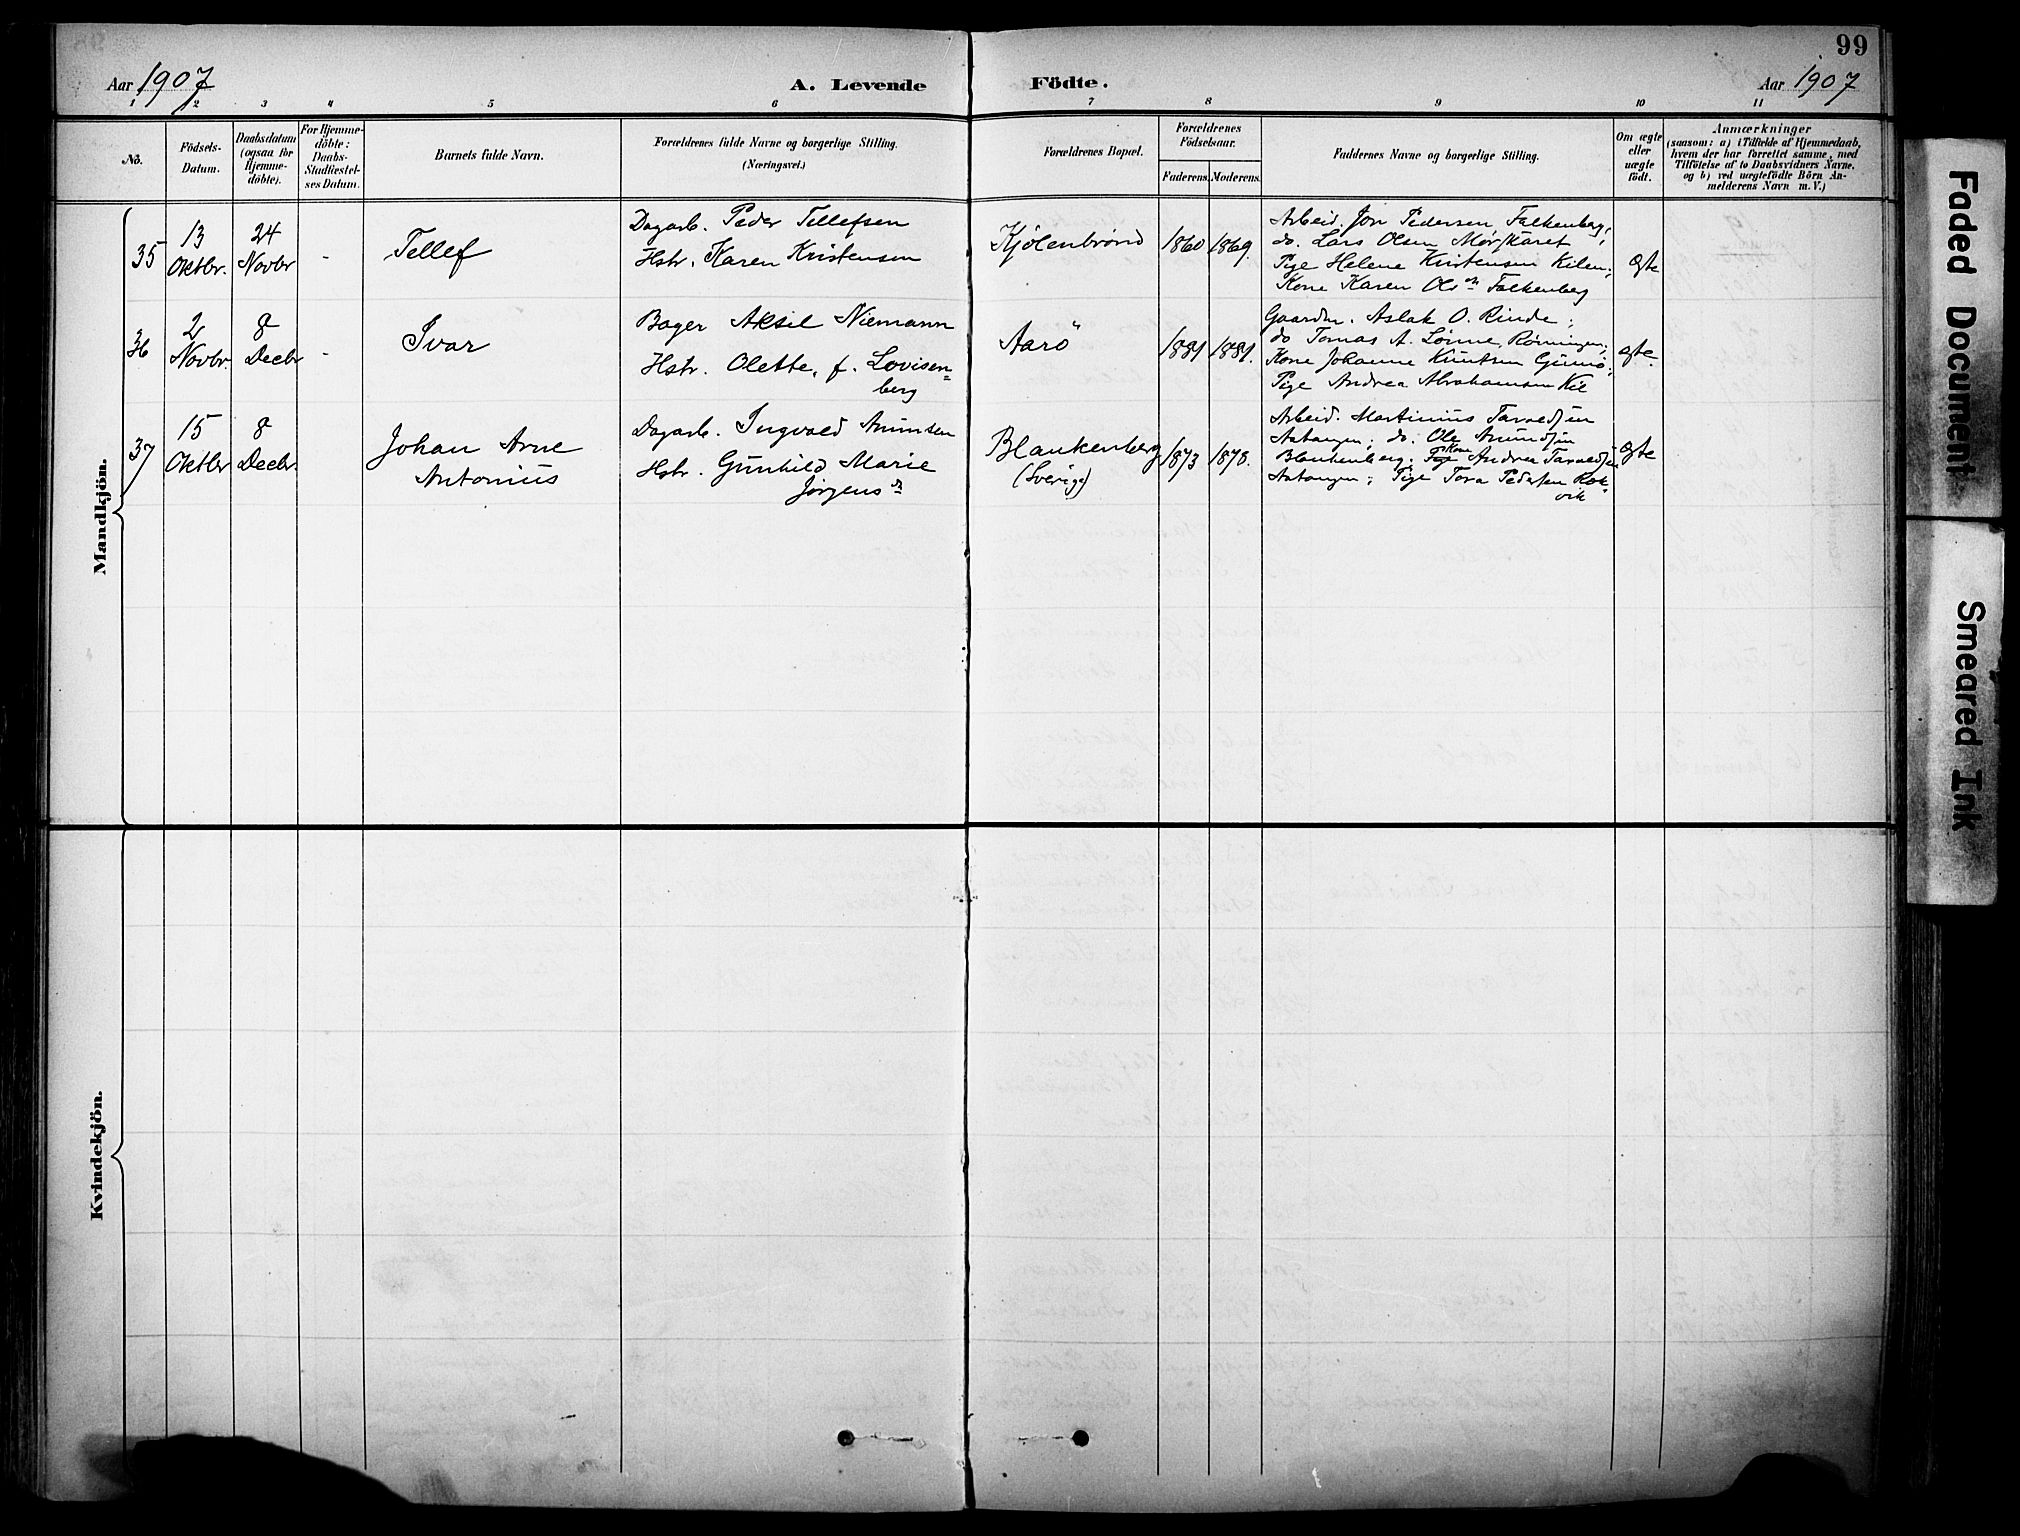 99
Aar 1907
A. Levende Födte.
Aar 1907
1 2 3 4 5 6 7 8 9 10 11
No.
Födsels-
Datum.
Daabsdatum
(ogsaa for
Hjemme-
döbte).
For Hjemme-
döbte:
Daabs-
Stadfæstel-
ses Datum.
Barnets fulde Navn.
Forældrenes fulde Navne og borgerlige Stilling.
(Næringsvei.)
Forældrenes Bopæl.
Forældrenes
Födselsaar.
Faderens. Moderens.
Faddernes Navne og borgerlige Stilling.
Om ægte
eller
uægte
födt.
Anmærkninger
(saasom: a) i Tilfælde af Hjemmedaab,
hvem der har forrettet samme, med
Tilföielse af to Daabsvidners Navne,
og b) ved uægtefödte Börn An-
melderens Navn m. V.)
Mandkjön.
35
13
Oktbr.
24
Novbr
-
Tellef
Dagarb. Peder Tellefsen
Hstr. Karen Kristensen
Kjölenbrönd
1860 1869.
Arbeid. Jon Pedersen Falkenberg;
do. Lars Olsen Mørfkaret
Pige Helene Kristensen Kilen;
Kone Karen Olsdr Falkenberg
Ægte
36
2
Novbr.
8
Decbr
-
Ivar
Bager Aksil Niemann
Hstr. Olette, f. Lovisen=
berg
Aarö
1881 1881.
Gaardm. Aslak O. Rinde;
do Tomas A. Lönne, Rörningen;
Kone Johanne Knutsen Gumö;
Pige Andrea Abrahamsen Kil
ægte.
37
15
Oktbr
8
Decbr.
Johan Arne
Antonius
Dagarb. Ingvald Anunsen
Hstr. Gunhild Marie
Jørgensdr
Blankenberg
(Sverige)
1873 1878.
Arbeid. Martinius Tarvedsen
Aatangen; do. Ole Anundsen
Blankenberg; Kone Andrea Tarvedsen
Aatangen; Pige Tora Pedersen Rok
vik
Ægte
Kvindekjön.
Faded Document
Smeared Ink